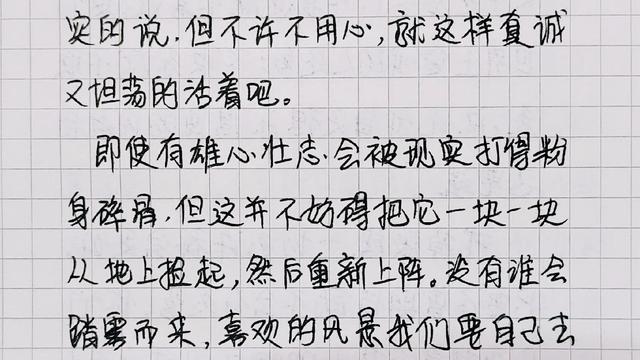 实的说，但不许不用心，就这样真诚
又坦荡的活着吧。
即使有雄心壮志会被现实打得粉
身碎骨，但这并不妨碍把它一块一块
从地上捡起，然后重新上阵。没有谁会
踏雾而来，喜欢的风景我们要自己去